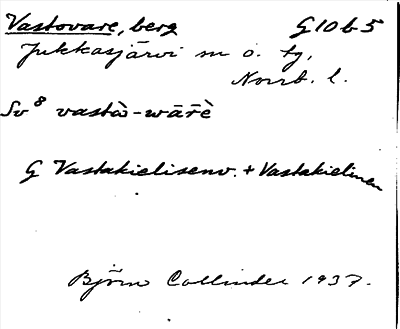 Vastovare, berg G10b5
Jukkasjärvi sn o. tg,
Norrb. l.
Sv⁸ vastɷ̀-wār̄è
G Vastakielisenv. + Vastakielinen
Björn Collinder 1937.